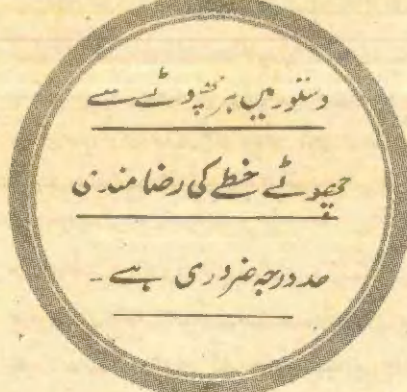 دستور میں ہر چھوٹے سے
چھوٹے خطے کی رضا مندی
حد درجہ ضروری ہے۔